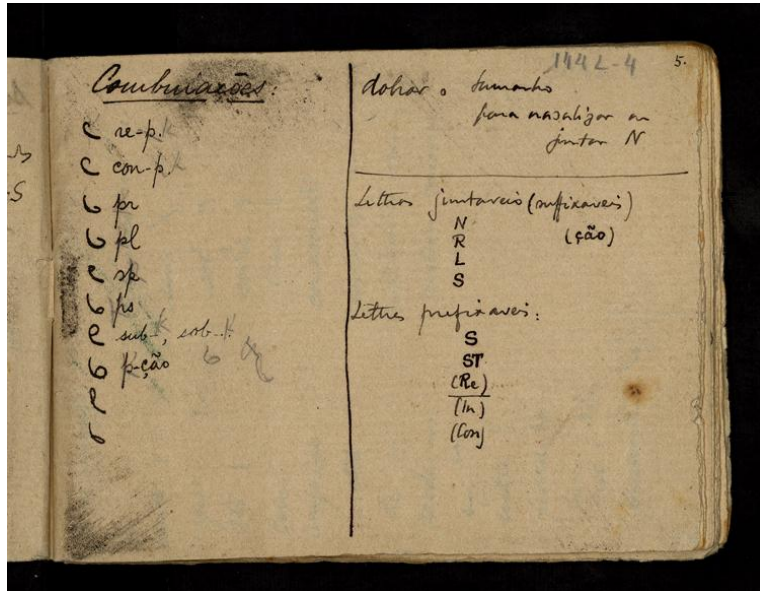 Combinações:
re-p.
con-p.
pr
pl
sp
ps
sub-, sob-
p-ção
144L-4
5.
dobrar o tamanho
para nasalizar ou
juntar N
Lettras juntaveis (suffixaveis)
N
R
(ção)
L
S
Lettras prefixaveis:
S
ST
(Re)
(In)
(Con)